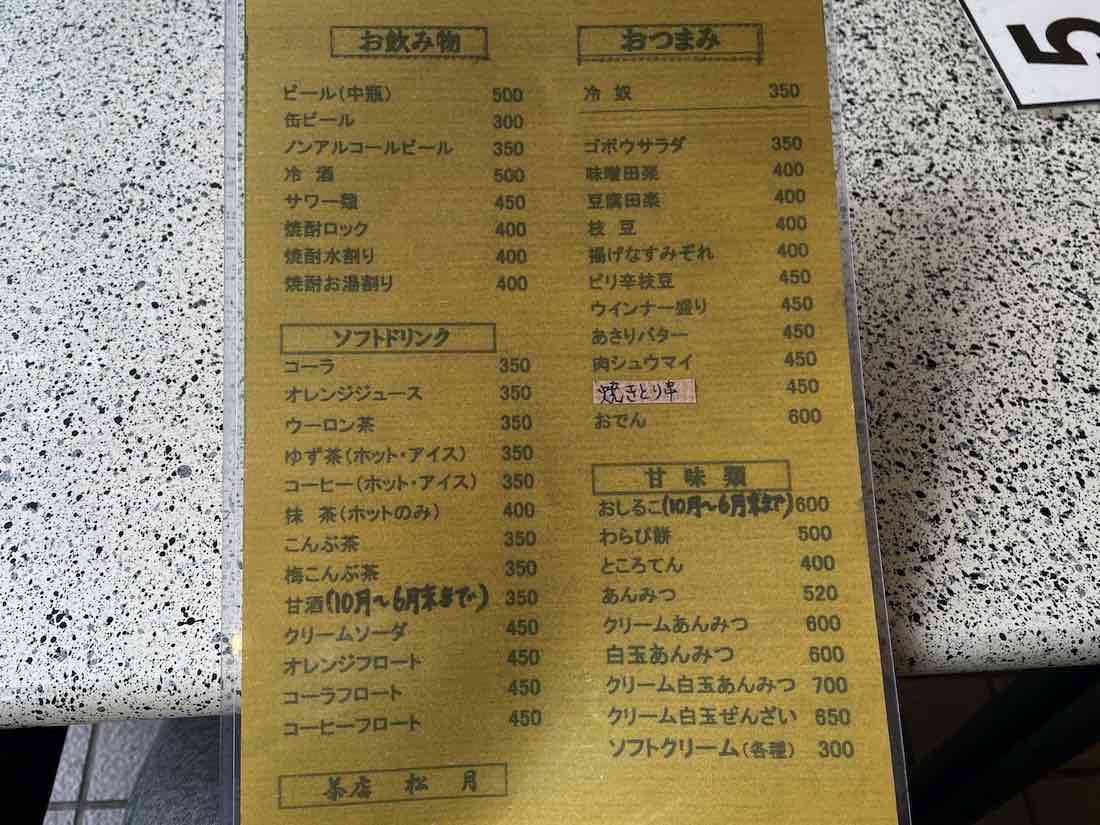 お飲み物
ビール(中瓶) 500
缶ビール 300
ノンアルコールビール 350
冷 酒 500
サワー類 450
焼酎ロック 400
焼酎水割り 400
焼酎お湯割り 400
ソフトドリンク
コーラ 350
オレンジジュース 350
ウーロン茶 350
ゆず茶(ホット・アイス) 350
コーヒー(ホット・アイス) 350
抹 茶(ホットのみ) 400
こんぶ茶 350
梅こんぶ茶 350
甘酒(10月～6月末まで) 350
クリームソーダ 450
オレンジフロート 450
コーラフロート 450
コーヒーフロート 450
茶店 松 月
おつまみ
冷 奴 350
ゴボウサラダ 350
味噌田楽 400
豆腐田楽 400
枝 豆 400
揚げなすみぞれ 400
ピリ辛枝豆 450
ウインナー盛り 450
あさりバター 450
肉シュウマイ 450
焼きとり串 450
おでん 600
甘 味 類
おしるこ(10月～6月末まで) 600
わらび餅 500
ところてん 400
あんみつ 520
クリームあんみつ 600
白玉あんみつ 600
クリーム白玉あんみつ 700
クリーム白玉ぜんざい 650
ソフトクリーム(各種) 300
5